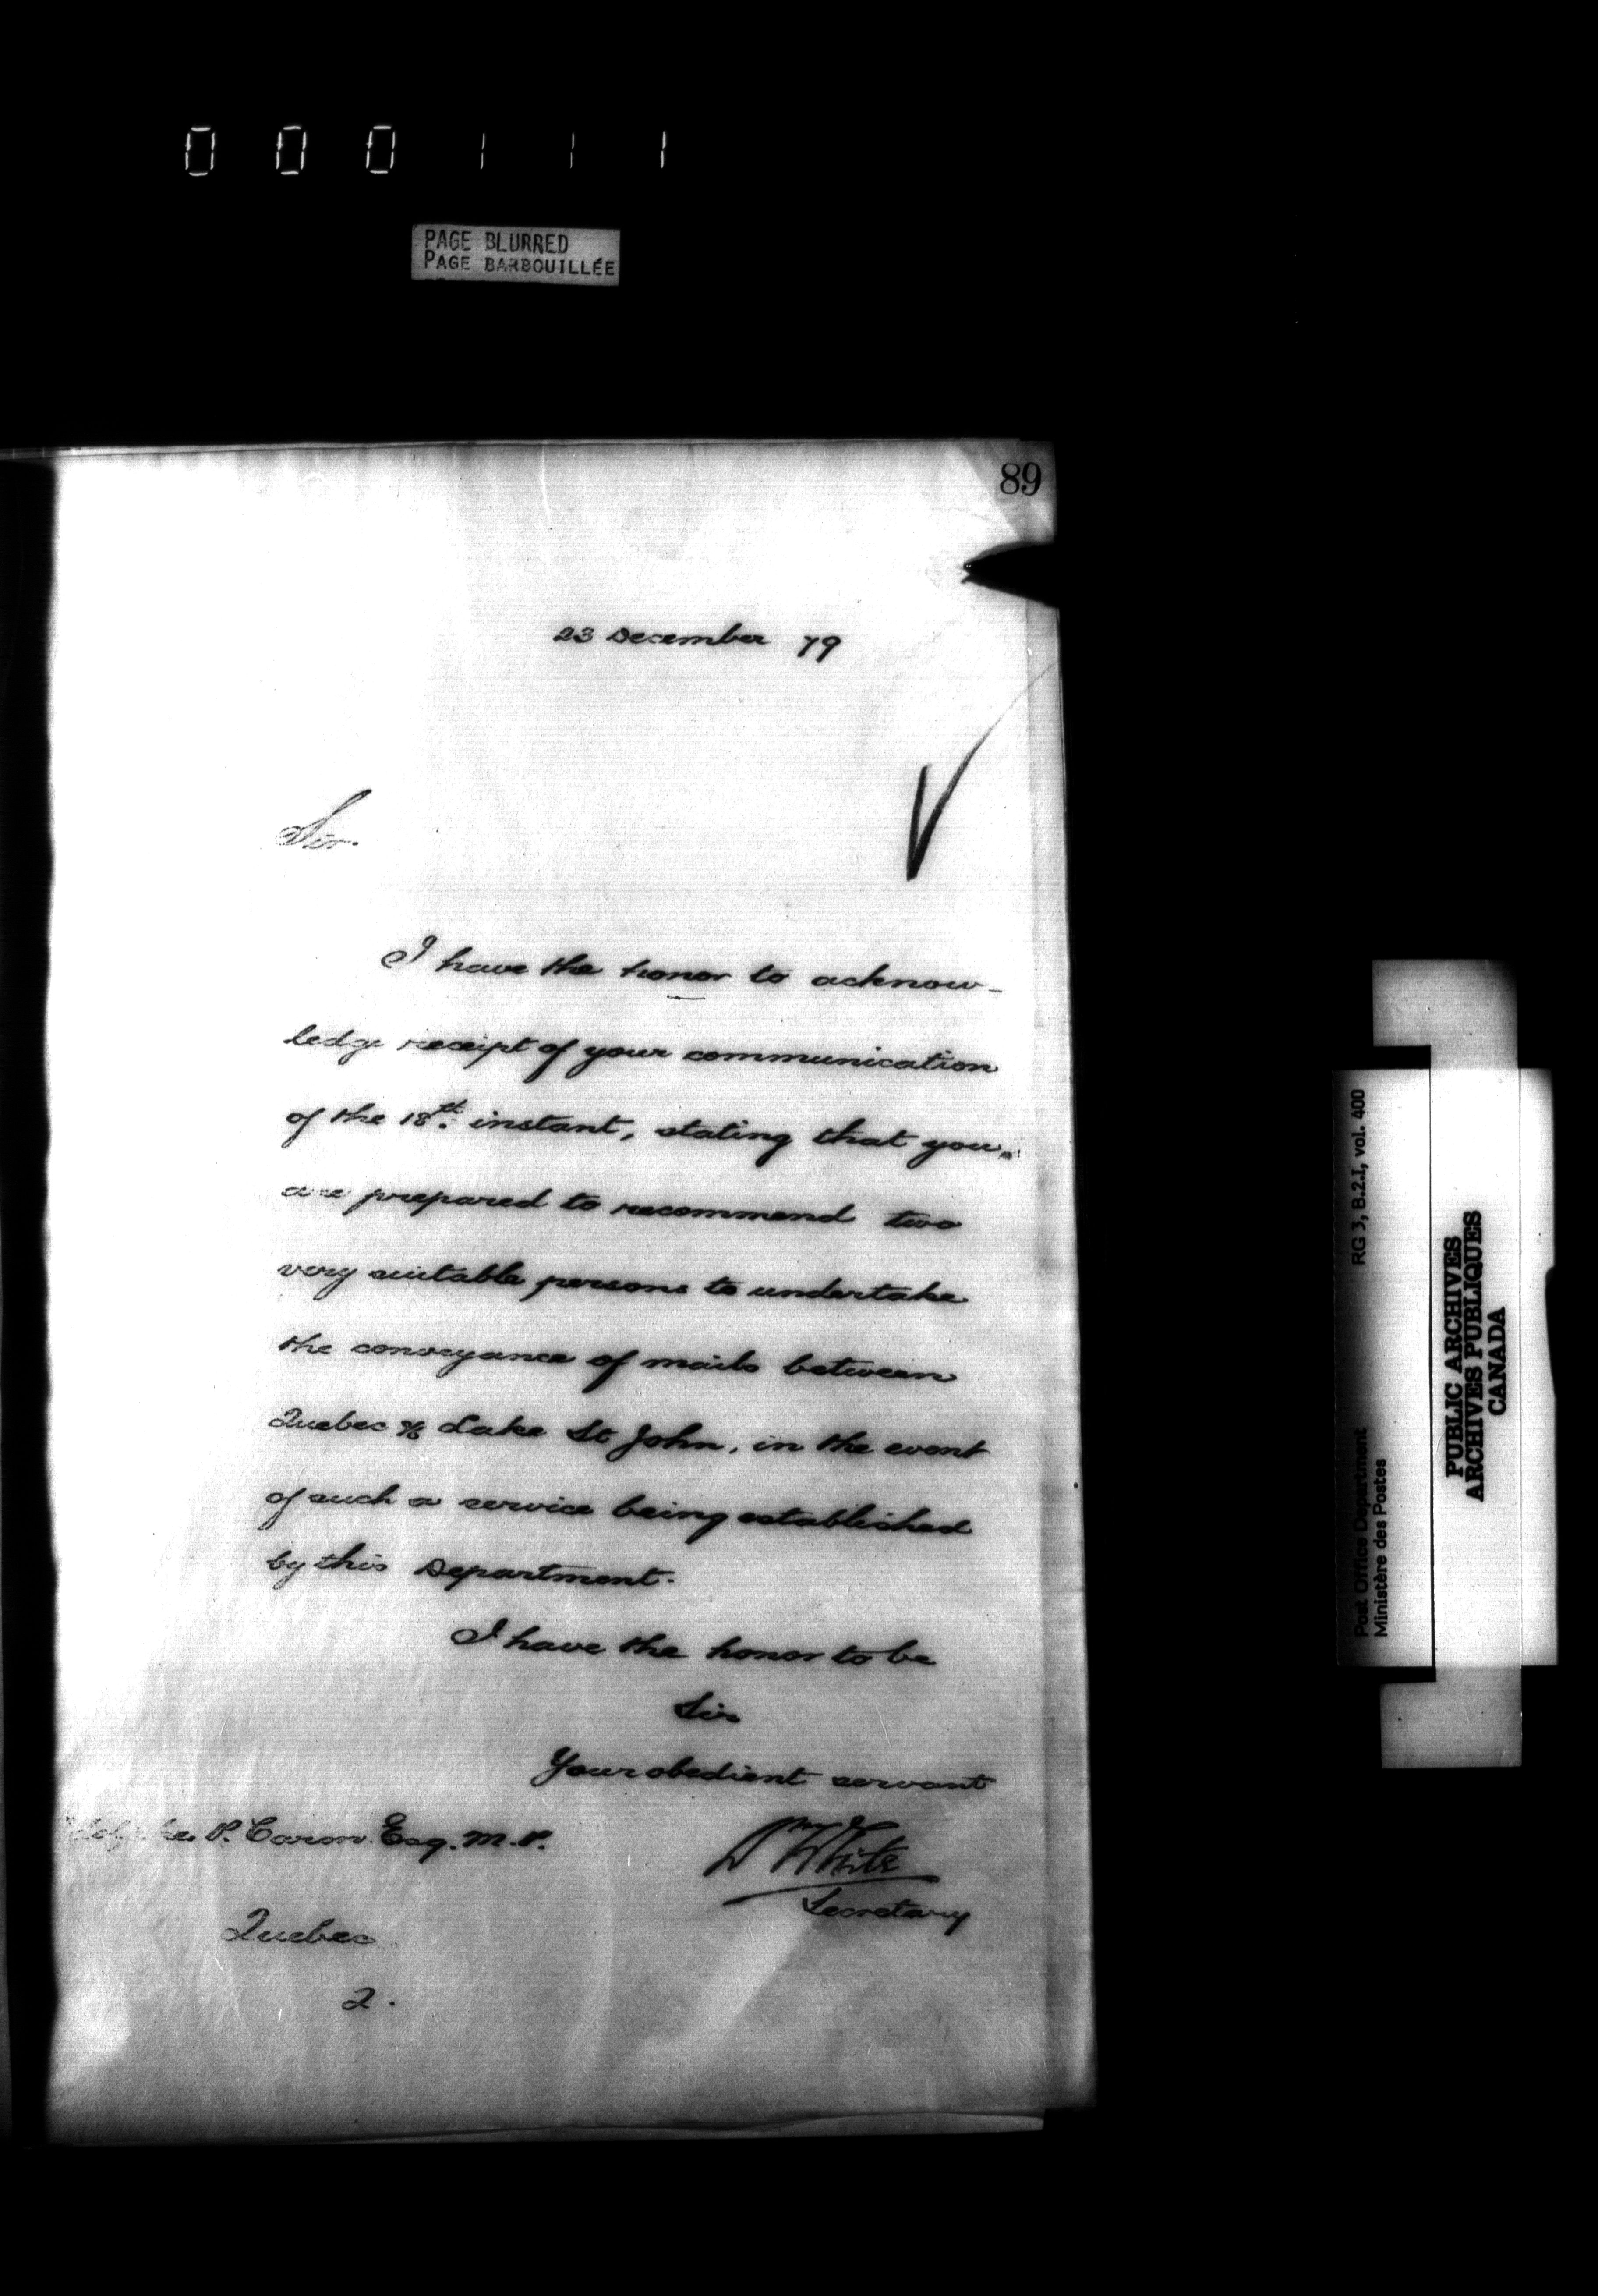 000111
PAGE BLURRED
PAGE BARBOUILLÉE
89
23 December 79
Sir.
I have the honor to acknow-
ledge receipt of your communication
of the 18th. instant, stating that you
are prepared to recommend two
very suitable persons to undertake
the conveyance of mails between
Quebec & Lake St John, in the event
of such a service being established
by this Department.
I have the honor to be
Sir
Your obedient servant
P. Caron Esq. M.P.
White
Secretary
Quebec
2.
RG 3, B.2.I, vol. 400
Post Office Department
Ministère des Postes
PUBLIC ARCHIVES
ARCHIVES PUBLIQUES
CANADA